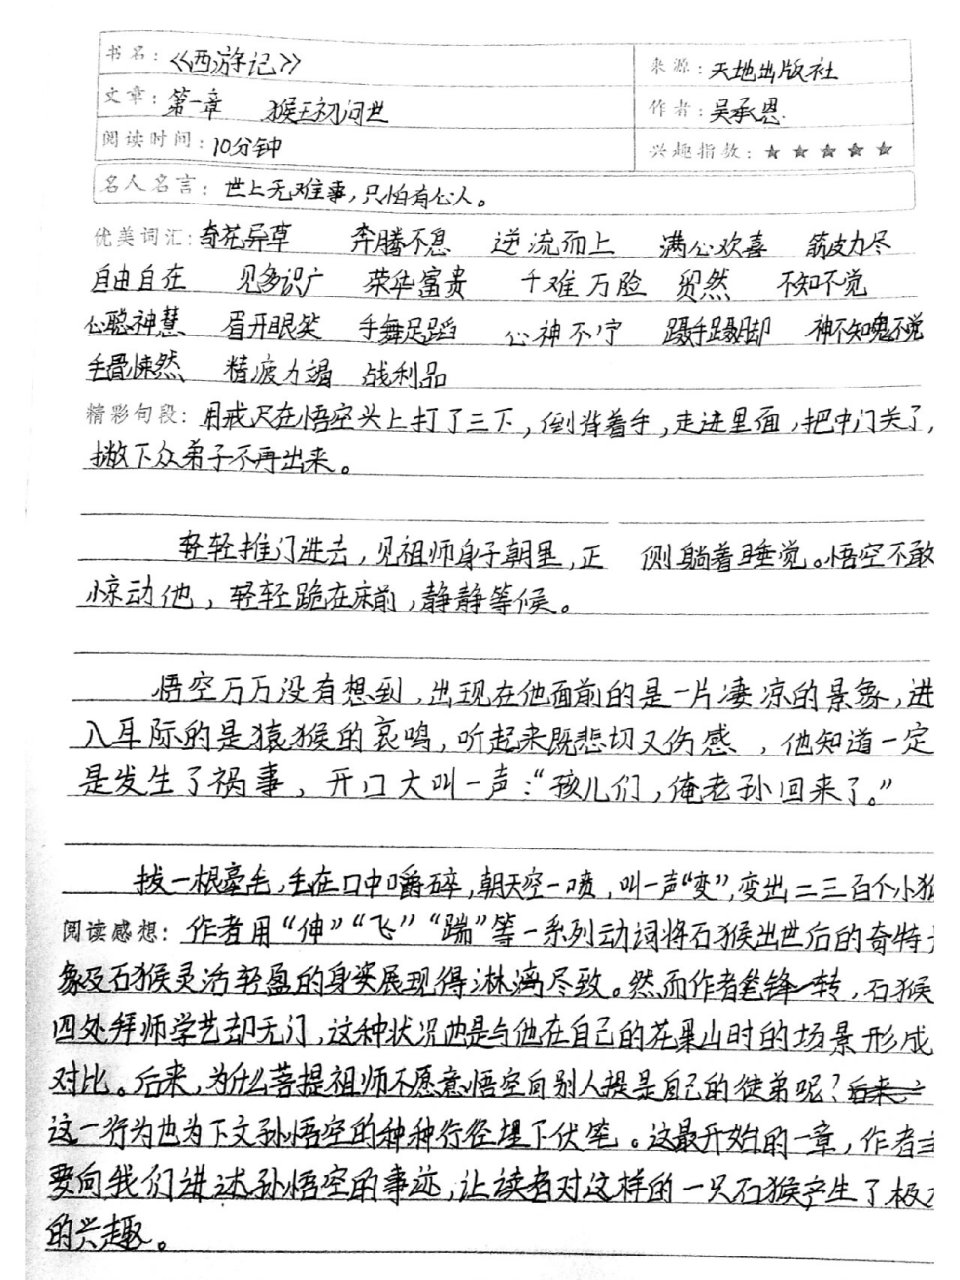 书名：《西游记》 来源：天地出版社
文章：第一章 猴王初问世 作者：吴承恩.
阅读时间：10分钟 兴趣指数：★★★★★
名人名言：世上无难事，只怕有心人。
优美词汇：奇花异草 奔腾不息 逆流而上 满心欢喜 筋皮力尽
自由自在 见多识广 荣华富贵 千难万脸 贸然 不知不觉
心聪神慧 眉开眼笑 手舞足蹈 心神不宁 蹑手蹑脚 神不知鬼不觉
毛骨悚然 精疲力竭 战利品
精彩句段：用戒尺在悟空头上打了三下，倒背着手，走进里面，把中门关了，
撇下众弟子不再出来。
轻轻推门进去，见祖师身子朝里，正 侧躺着睡觉。悟空不敢
惊动他，轻轻跪在床前，静静等候。
悟空万万没有想到，出现在他面前的是一片凄凉的景象，进
入耳际的是猿猴的哀鸣，听起来既悲切又伤感，他知道一定
是发生了祸事，开口大叫一声：“孩儿们，俺老孙回来了。”
拔一根毫毛，丢在口中嚼碎，朝天空一喷，叫一声“变”，变出二三百个小猴
阅读感想：作者用“伸”“飞”“踹”等一系列动词将石猴出世后的奇特
象及石猴灵活轻盈的身姿展现得淋漓尽致。然而作者笔锋一转，石猴
四处拜师学艺却无门，这种状况也是与他在自己的花果山时的场景形成
对比。后来，为什么菩提祖师不愿意悟空向别人提是自己的徒弟呢？后来，
这一行为也为下文孙悟空的种种行径埋下伏笔。这最开始的一章，作者主
要向我们讲述孙悟空的事迹，让读者对这样的一只石猴产生了极大
的兴趣。